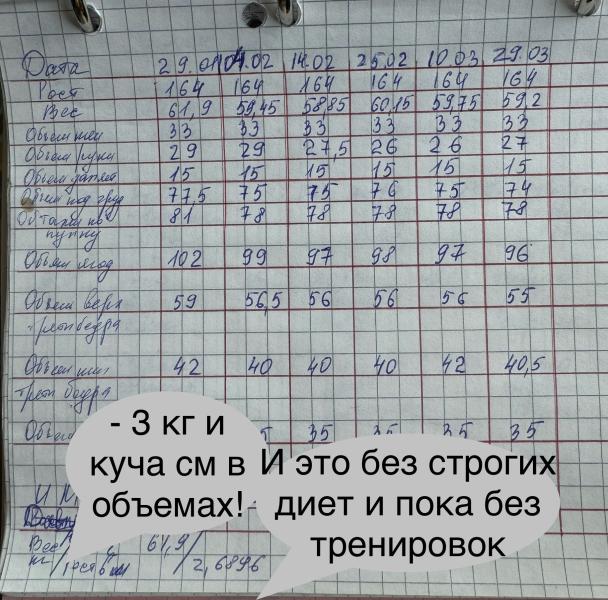 Дата 29.01 04.02 14.02 25.02 10.03 29.03
Рост 164 164 164 164 164 164
Вес 61,9 59,45 58,85 60,15 59,75 59,2
Объем шеи 33 33 33 33 33 33
Объем руки 29 29 27,5 26 26 27
Объем 15 15 15 15 15 15
Объем под груд 77,5 75 75 76 75 74
Об талии по 81 78 78 78 78 78
пупку
Объем ягод 102 99 97 98 97 96
Объем верх 59 56,5 56 56 56 55
трети бедра
Объем ниж 42 40 40 40 42 40,5
трети бедра
Объем 35 35 35 35
- 3 кг и
куча см в
объемах!
И это без строгих
диет и пока без
тренировок
Вес 61,9/2,6896
кг/рост в м